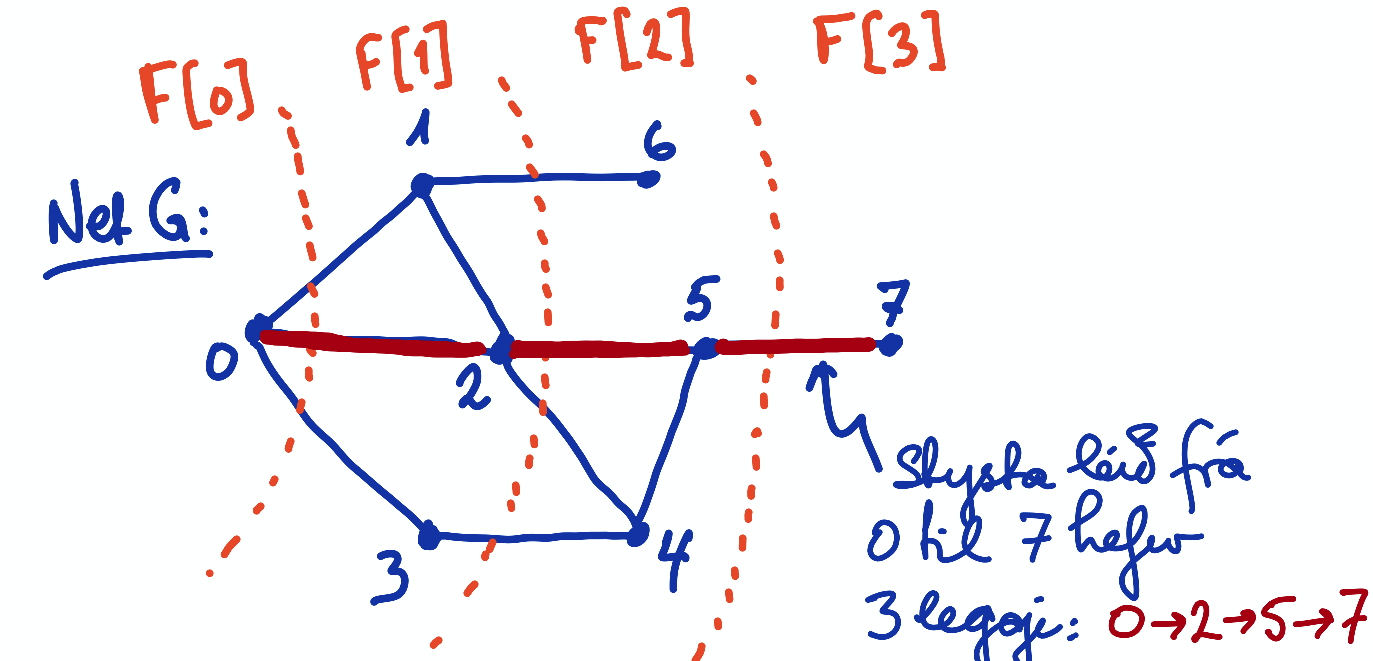 F[0] F[1] F[2] F[3]
1 6
Net G:
5 7
0 2
3 4
Stysta leið frá
0 til 7 hefur
3 leggi: 0→2→5→7